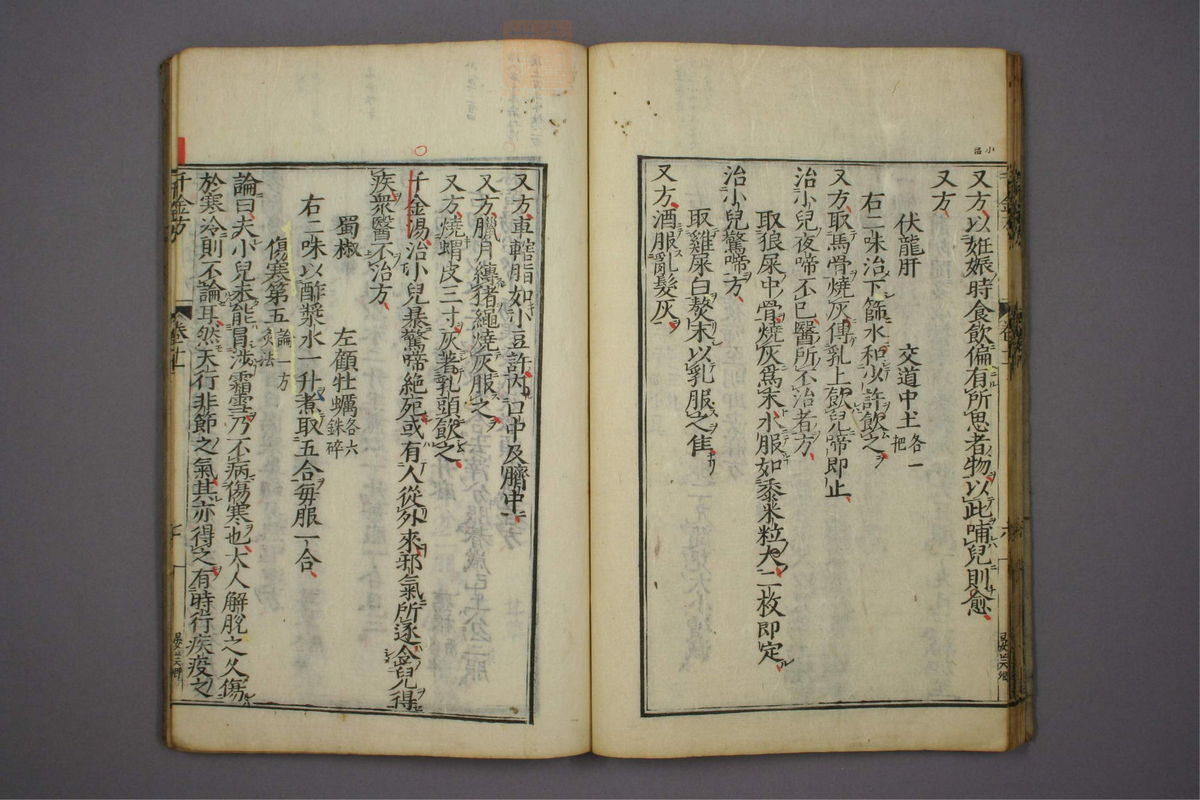 又方以姙娠時食飲偏有所思者物以此哺兒則愈
又方
伏龍肝　交道中土各一把
右二味治下篩水和少許飲之
又方取馬骨燒灰傅乳上飲兒啼即止
治小兒夜啼不已醫所不治者方
取狼屎中骨燒灰爲末水服如黍米粒大二枚即定
治小兒驚啼方
取雞屎白熬末以乳服之佳
又方酒服亂髮灰
又方車轄脂如小豆許內口中及臍中
又方臘月縛猪繩燒灰服之
又方燒蝟皮三寸灰著乳頭飲之
千金湯治小兒暴驚啼絕死或有人從外來邪氣所逐令兒得
疾衆醫不治方
蜀椒　左顧牡蠣各六銖碎
右二味以酢漿水一升煮取五合每服一合
傷寒第五論　方　灸法
論曰夫小兒未能冒涉霜雪乃不病傷寒也大人解脫之久傷
於寒冷則不論耳然天行非節之氣其亦得之有時行疾疫之
千金方